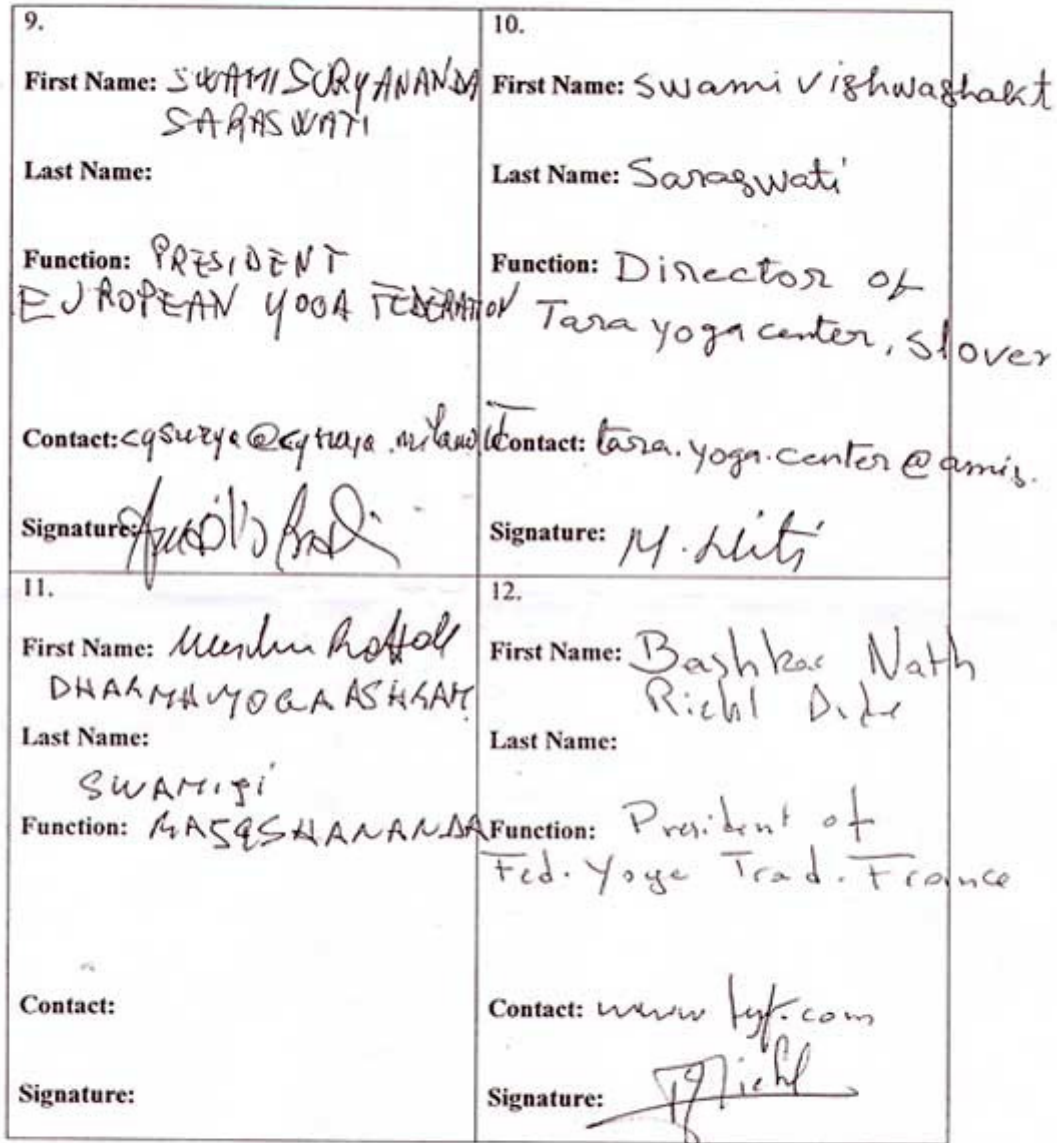 9.
First Name: SWAMI SURYANANDA
SARASWATI
Last Name:
Function: PRESIDENT
EUROPEAN YOGA FEDERATION
Contact:
Signature:
10.
First Name: Swami Vishwashakt
Last Name: Saraswati
Function: Director of
Tara yoga center, Slover
Contact: tara.yoga.center@amis.
Signature:
11.
First Name:
DHARMA YOGA ASHRAM
Last Name:
SWAMIJI
Function:
Contact:
Signature:
12.
First Name: Bashkar Nath
Riehl
Last Name:
Function: President of
Fed. Yoga Trad. France
Contact: www
Signature: Riehl